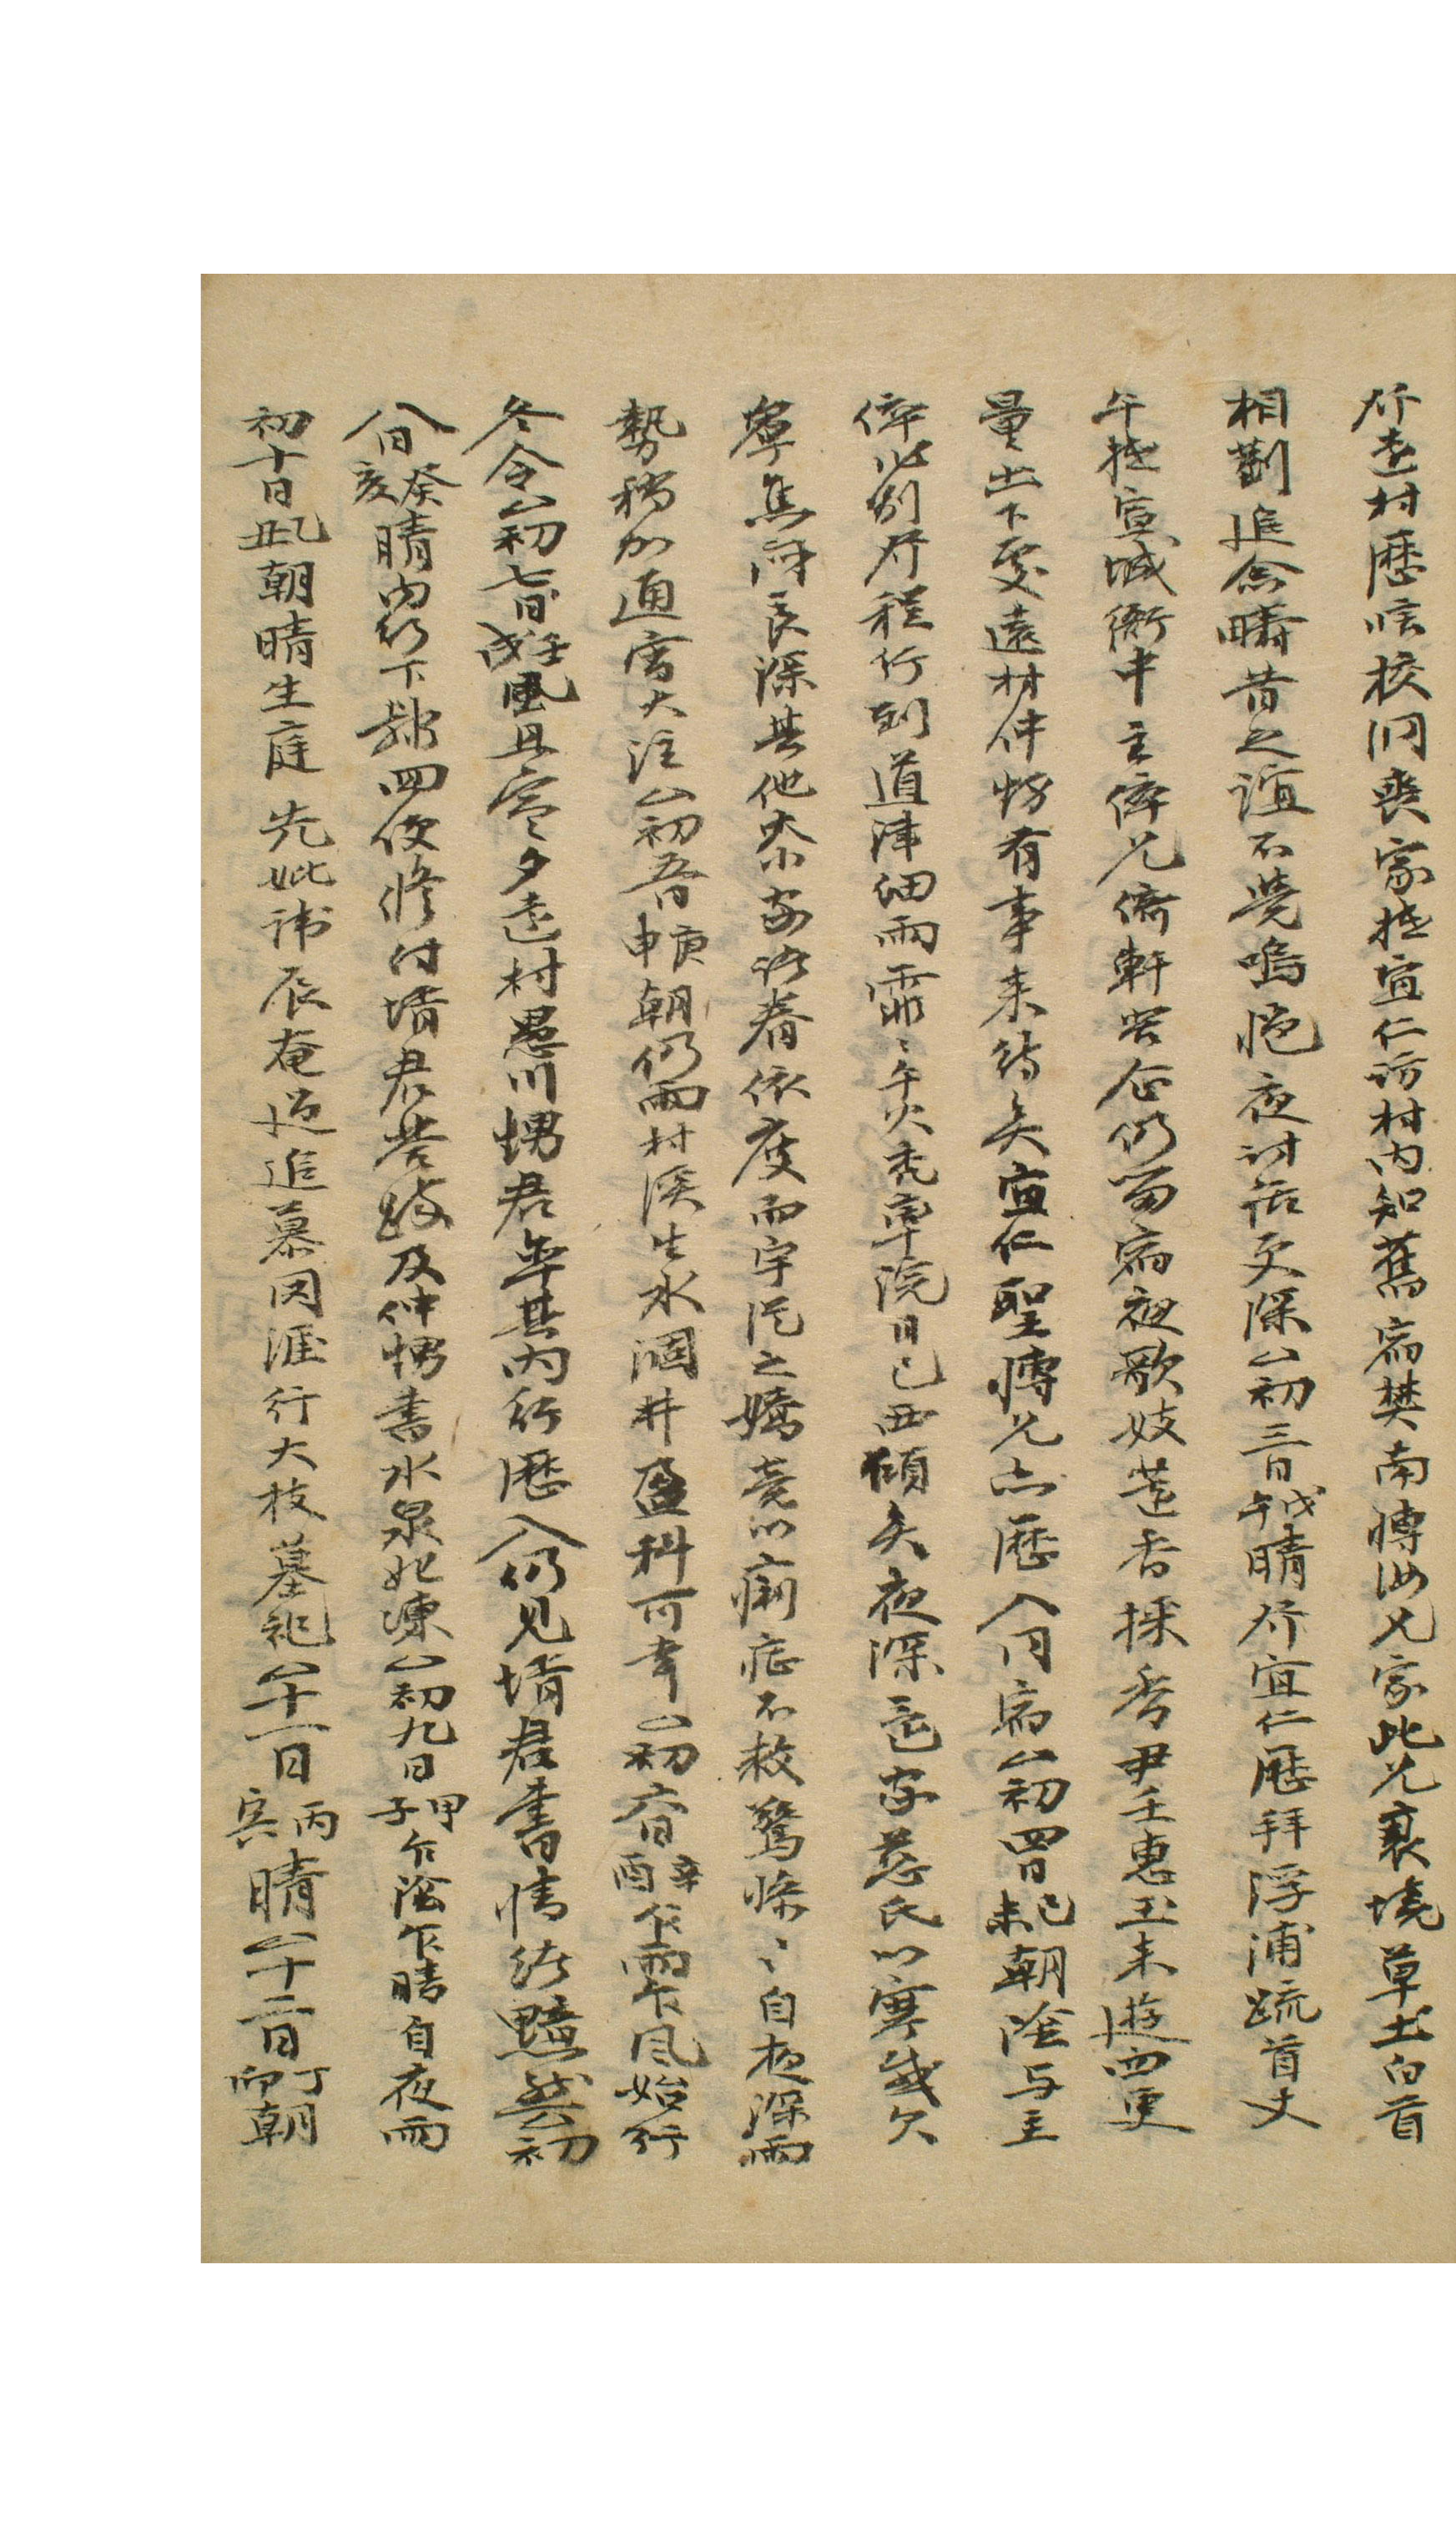 行遠村歷唁校洞喪家抵宜仁訪村內知舊宿樊南博汝兄家此兄衰境草土白首
相對追念疇昔之誼不覺嗚悒夜討話更深△初三日戊午晴行宜仁歷拜浮浦疏首丈
午抵宣城衙中主倅兄倚軒哭企仍留宿夜歌妓蓮香採香尹壬惠玉來遊四更
量出下處遠村仲妨有事來待矣宜仁聖博兄亦歷入同宿△初四日己未朝陰与主
倅作別行程行到道津細雨霏〻午火禿車院日已西傾矣夜深還家慈氏以寒感欠
寧焦悶良深其他大小家諸眷依度而宇從之嬌竟以痢症不救驚慘〻自夜深雨
勢稍加通宵大注△初五日庚申朝仍雨村溪生水涸井盈科可幸△初六日辛酉乍雨乍風始行
冬令△初七日壬戌風且寒夕遠村愚川甥君率其內行歷入仍見壻君書情緖黯然△初
八日癸亥晴內行下鄕回便修付壻君答書及仲甥書水泉始凍△初九日甲子乍陰乍晴自夜雨
初十日乙丑朝晴生庭 先妣諱辰奄過追慕罔涯行大枝墓祀△十一日丙寅晴△十二日丁卯朝